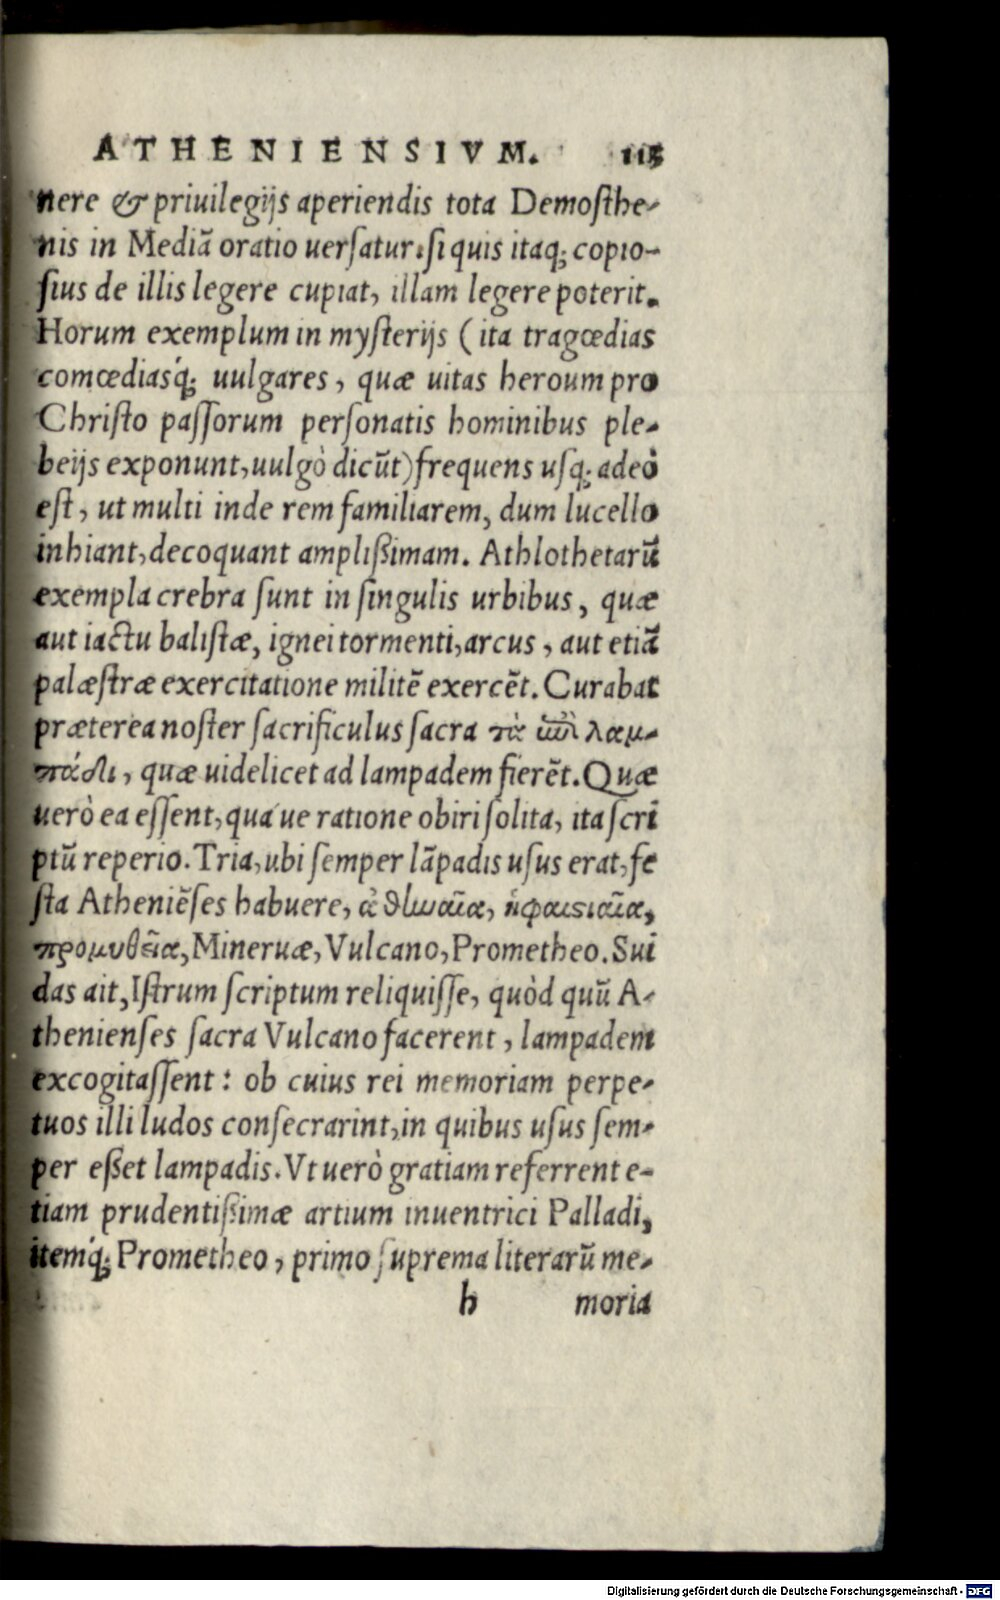 ATHENIENSIVM. 113
nere & priuilegijs aperiendis tota Demosthe-
nis in Mediā oratio uersatur. si quis itaq; copio-
sius de illis legere cupiat, illam legere poterit.
Horum exemplum in mysterijs (ita tragœdias
comœdiasq́; uulgares, quæ uitas heroum pro
Christo passorum personatis hominibus ple-
beijs exponunt, uulgò dicūt) frequens usq; adeò
est, ut multi inde rem familiarem, dum lucello
inhiant, decoquant amplißimam. Athlothetarū
exempla crebra sunt in singulis urbibus, quæ
aut iactu balistæ, ignei tormenti, arcus, aut etiā
palæstræ exercitatione militē exercēt. Curabat
præterea noster sacrificulus sacra τὰ ἐπὶ λαμ-
πάδι, quæ uidelicet ad lampadem fierēt. Quæ
uerò ea essent, qua ue ratione obiri solita, ita scri
ptū reperio. Tria, ubi semper lāpadis usus erat, fe
sta Atheniēses habuere, ἀθλωαῖα, ἡφαιςιαῖα,
προμυθεῖα, Mineruæ, Vulcano, Prometheo. Sui
das ait, Istrum scriptum reliquisse, quòd quū A-
thenienses sacra Vulcano facerent, lampadem
excogitassent: ob cuius rei memoriam perpe-
tuos illi ludos consecrarint, in quibus usus sem-
per eßet lampadis. Vt uerò gratiam referrent e-
tiam prudentißimæ artium inuentrici Palladi,
itemq́; Prometheo, primo suprema literarū me-
h moria
Digitalisierung gefördert durch die Deutsche Forschungsgemeinschaft - DFG